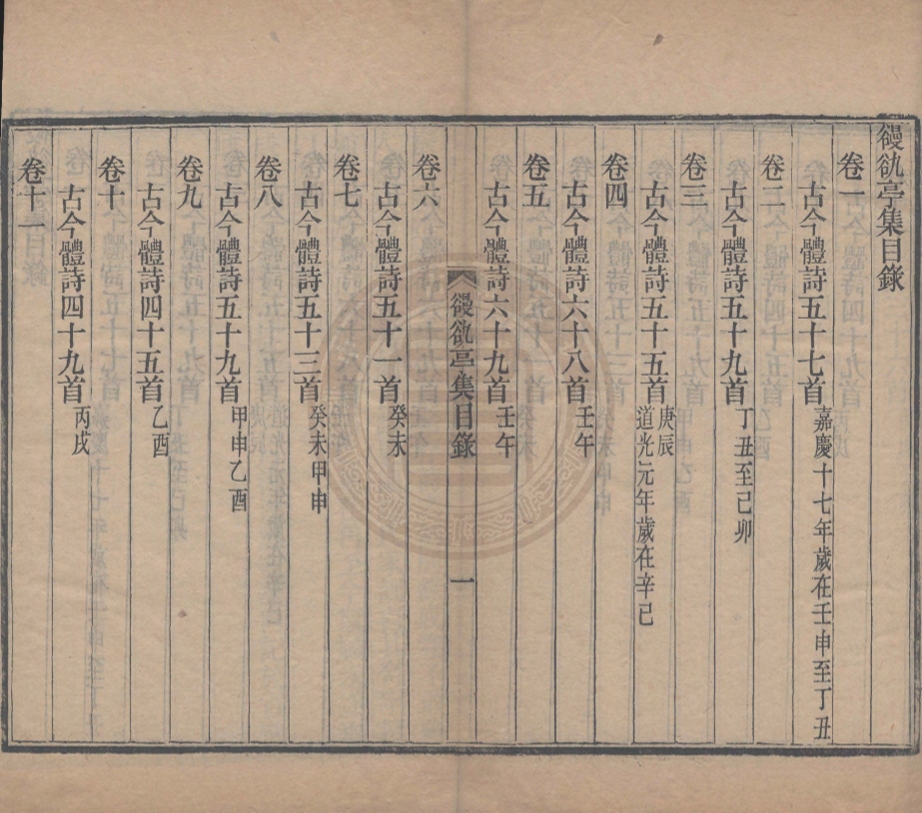 䜱䜪亭集目錄
卷一
古今體詩五十七首 嘉慶十七年歲在壬申至丁丑
卷二
古今體詩五十九首 丁丑至己卯
卷三
古今體詩五十五首 庚辰
道光元年歲在辛巳
卷四
古今體詩六十八首 壬午
卷五
古今體詩六十九首 壬午
䜱䜪亭集目錄 一
卷六
古今體詩五十一首 癸未
卷七
古今體詩五十三首 癸未甲申
卷八
古今體詩五十九首 甲申乙酉
卷九
古今體詩四十五首 乙酉
卷十
古今體詩四十九首 丙戌
卷十一